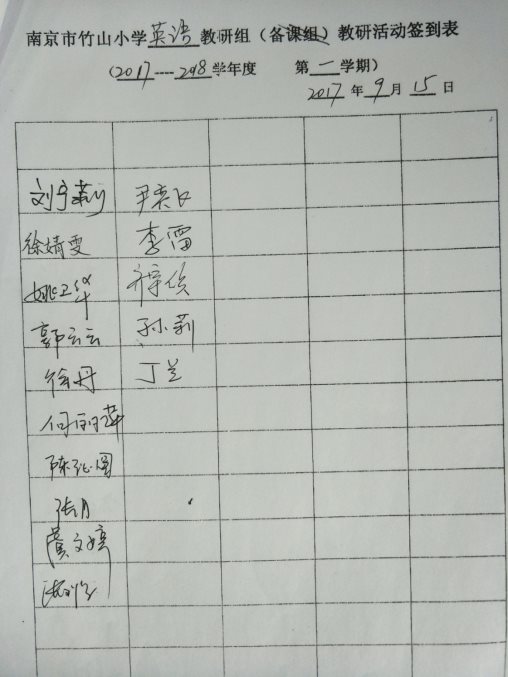 南京市竹山小学英语教研组（备课组）教研活动签到表
（2017----2018学年度 第一学期）
2017年9月15日
刘宇莉 尹奕
徐婧雯 李雷
姚卫华
郭云云 孙莉
徐丹 丁兰
何丽萍
陈
张月
虞文婷